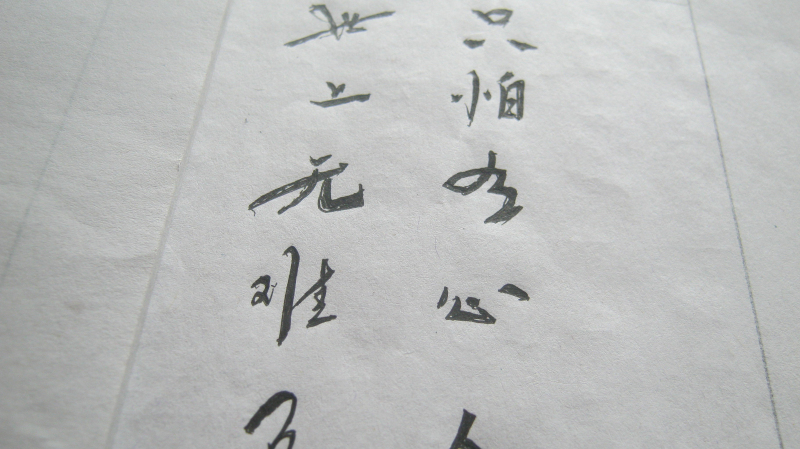 世上无难
只怕有心